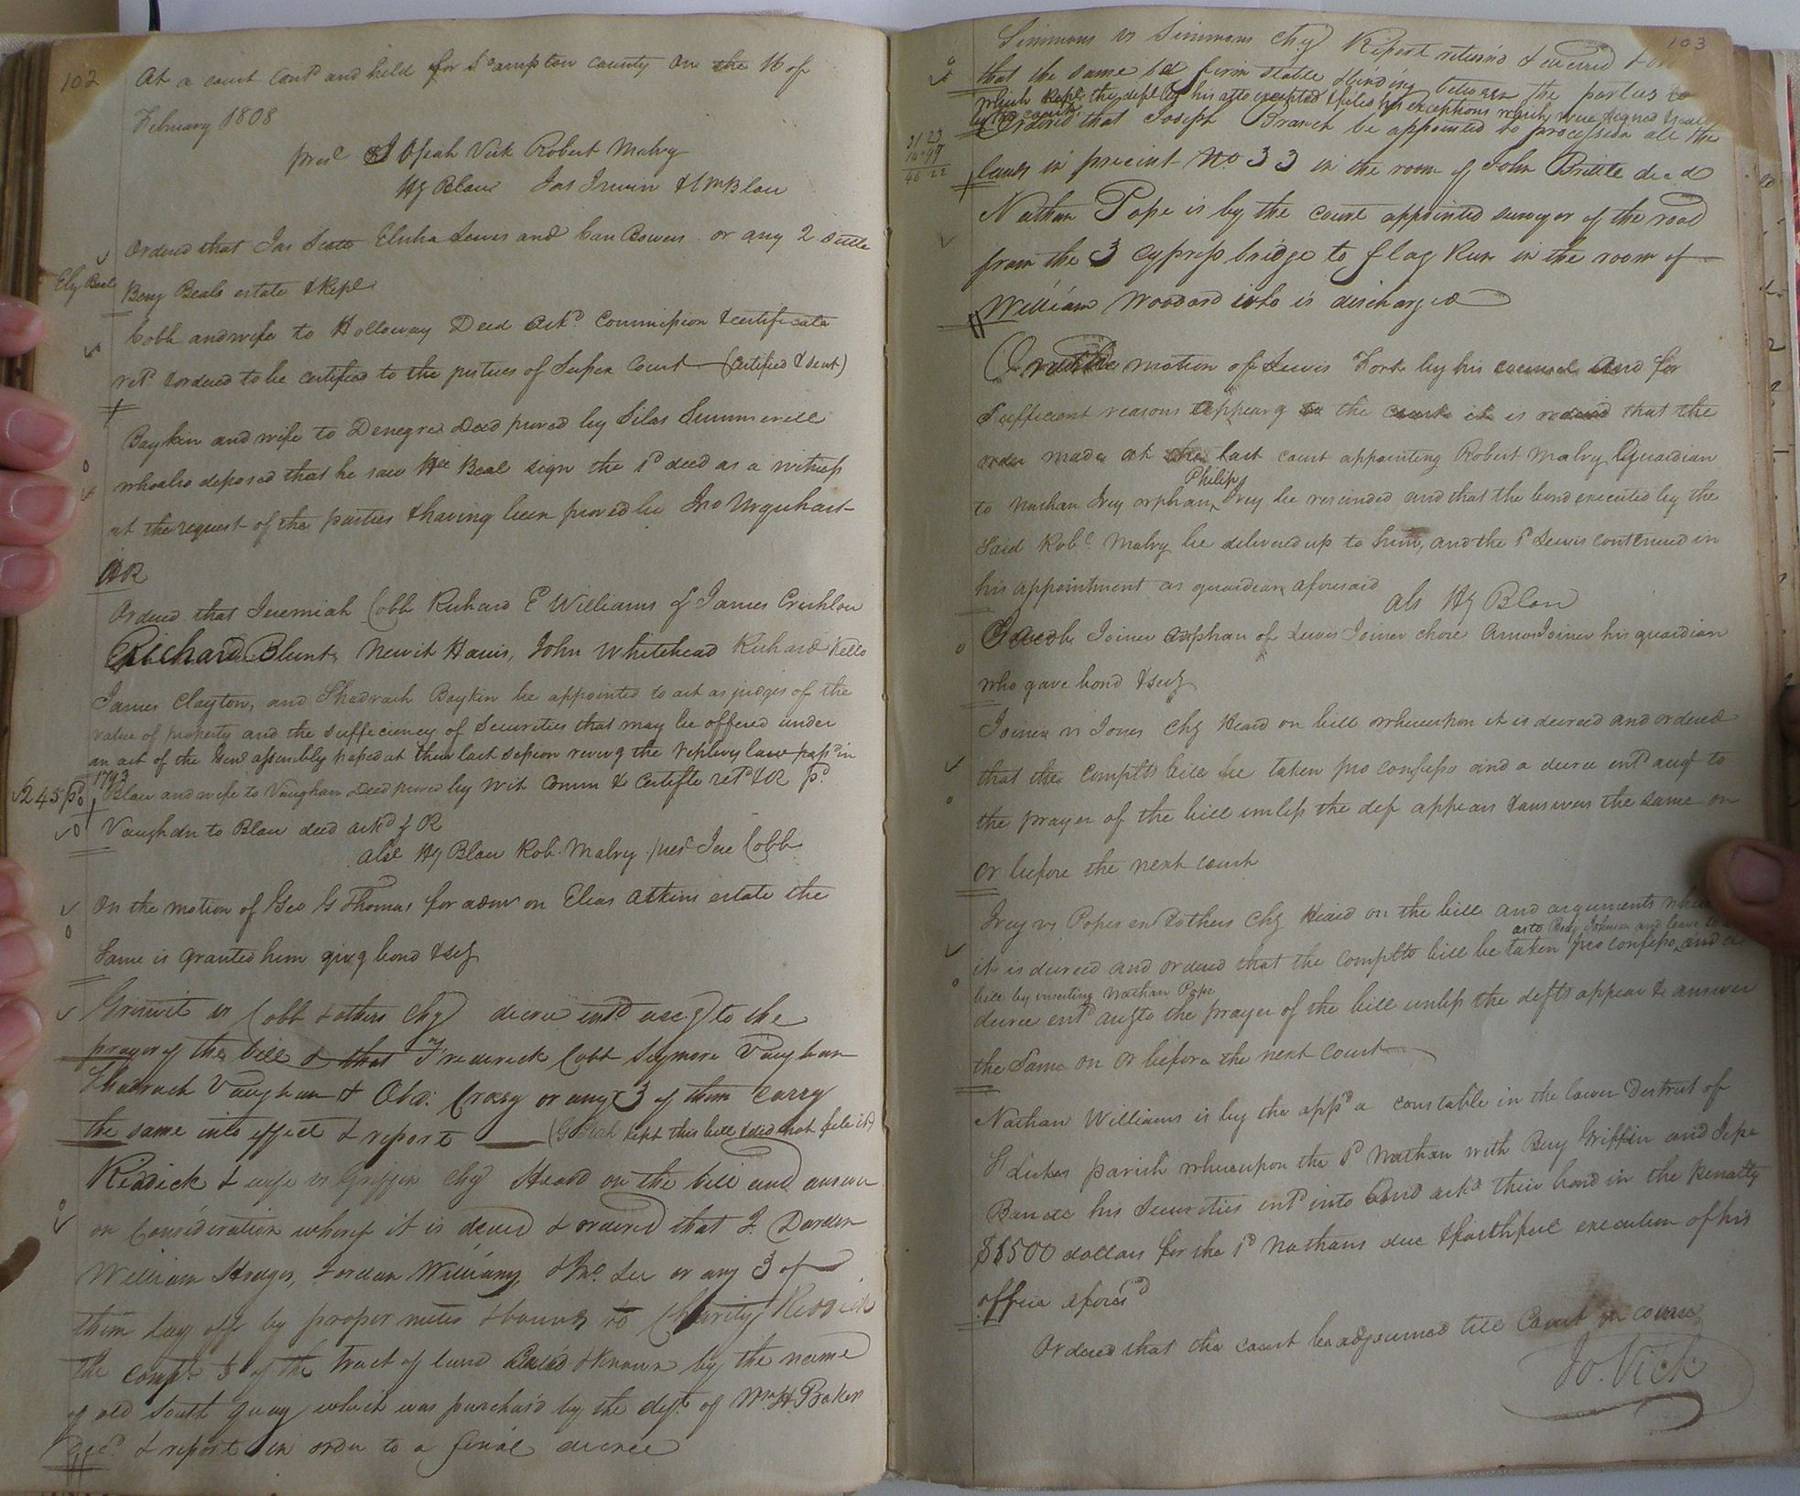 102
At a court Cont^d and held for S^o ampton county On the 16 of
February 1808
pres^t Josiah Vick Robert Malry
Hy Blow Jas Irwin & Wm Blow
Ordered that Jas Scott Elisha Lewis and Can Bowers or any 2 settle
Ely Beal
Benj Beals estate & Rept
Cobb and wife to Holloway Deed Ack^d Commission & certificate
ret^d & ordered to be certified to the justices of Super Court (Certified & sent)
Boykin and wife to Denegre Deed proved by Silas Summerell
who also deposed that he saw Beal sign the s^d deed as a witness
at the request of the parties & having been proved by Jno Urquhart
OR
Ordered that Jeremiah Cobb Richard E Williams James Crichlow
Richard Blunt, Newit Harris, John Whitehead Richard Kello
James Clayton, and Shadrach Boykin be appointed to act as judges of the
value of property and the sufficiency of Securities that may be offered under
an act of the Gen^l assembly passed at their last session reviv^g the replevy law pass^d in
1793
245
Blow and wife to Vaughan Deed proved by wit Comm & Certifte ret^d & R
Vaughan to Blow deed ack^d & R
abs^t Hy Blow Rob Malry pres^t Jere Cobb
On the motion of Geo G Thomas for adm on Elias Atkins estate the
Same is granted him giv^g bond & sec^y
Grimit vs Cobb & others Chy decree ent^d acc^g to the
prayer of the bill & that Frederick Cobb Seymore Vaughan
Shadrach Vaughan & Obd: Crary or any 3 of them carry
the same into effect & report kept this bill & did not file it)
Riddick & wife vs Griffin Chy Heard on the bill and answer
on Consideration whereof it is decreed & ordered that J. Darden
William Hodges, Jordan Williams, & Jno. Lee or any 3 of
them lay off by proper metes & bounds to Charity Riddick
the compl^t 1/3 of the tract of land Called & known by the name
of old South quay which was purchasd by the def^t of Wm H. Baker
dec^d & report in order to a final decree
103
Simmons vs Simmons Chy Report return^d & decreed
that the same be firm stable & binding between the parties to
which Rept the deft by his atto excepted & filed his exceptions which were signed
Ordered that Joseph Branch be appointed to procession all the
31 23
46 22
lands in precinct No 33 in the room of John Brittle dec^d
Nathan Pope is by the court appointed surveyor of the road
from the 3 cypress bridge to flag Run in the room of
William Woodard who is discharged
On the motion of Lewis Fort by his counsel And for
Sufficient reasons Appear^g to the court it is ordered that the
order made at the last court appointing Robert Malry Guardian
Philip
to Nathan Ivey orphan, Ivey be rescinded and that the bond executed by the
Said Rob^t Malry be delivered up to him, and the s^d Lewis continued in
his appointment as guardian aforesaid
abs Hy Blow
Jacob Joiner orphan of Lewis Joiner chose Amos Joiner his guardian
who gave bond & sec^y
Joiner vs Jones Chy Heard on bill whereupon it is decreed and ordered
that the complts bill be taken pro confesso and a decree ent^d acc^g to
the prayer of the bill unless the def appears & answers the same on
or before the next court
Ivey vs Popes ex & others Chy Heard on the bill and arguments
as to Benj Johnson and leave to
it is decreed and ordered that the complts bill be taken pro confesso, and a
bill by inserting Nathan Pope
decree ent^d acc^g to the prayer of the bill unless the defts appear & answer
the Same on or before the next court
Nathan Williams is by the app^d a constable in the lower District of
S^t Lukes parish whereupon the s^d Nathan with Benj Griffin and Jesse
his Securities ent^d into and ack^d their bond in the penalty
$1500 dollars for the s^d Nathans due & faithful execution of his
office afores^d
Ordered that the court be adjourned till Court in course
Jo. Vick